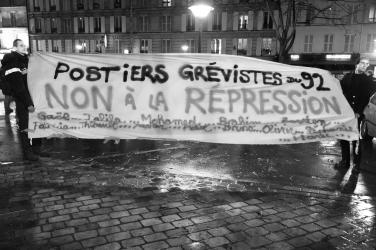 POSTIERS GRÉVISTES DU 92
NON À LA RÉPRESSION
Gaël Jalila Mohamed Brahim
Yassin Bruno Olivier